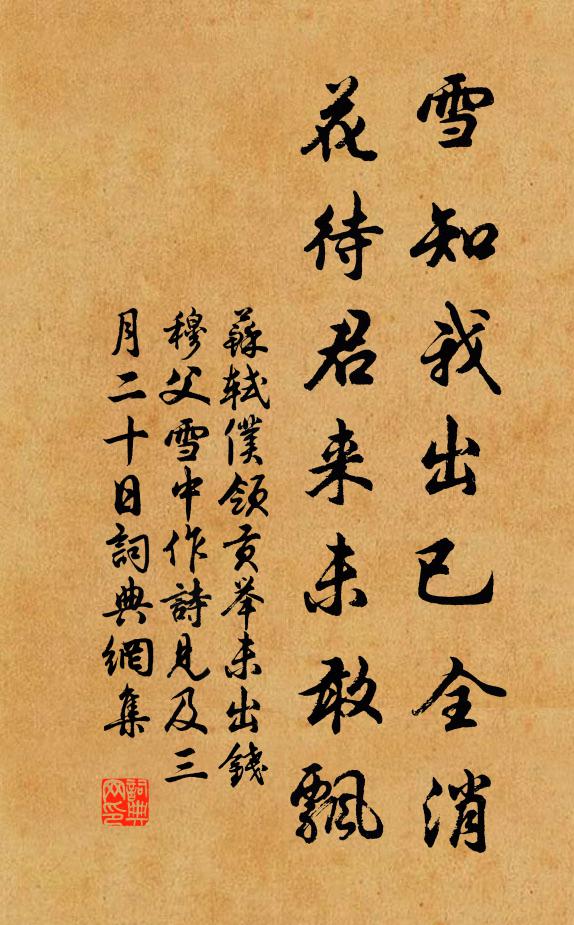 雪知我出已全消
花待君来未敢飄
蘇軾僕領貢举未出錢
穆父雪中作詩見及三
月二十日詞典網集
詞典网印